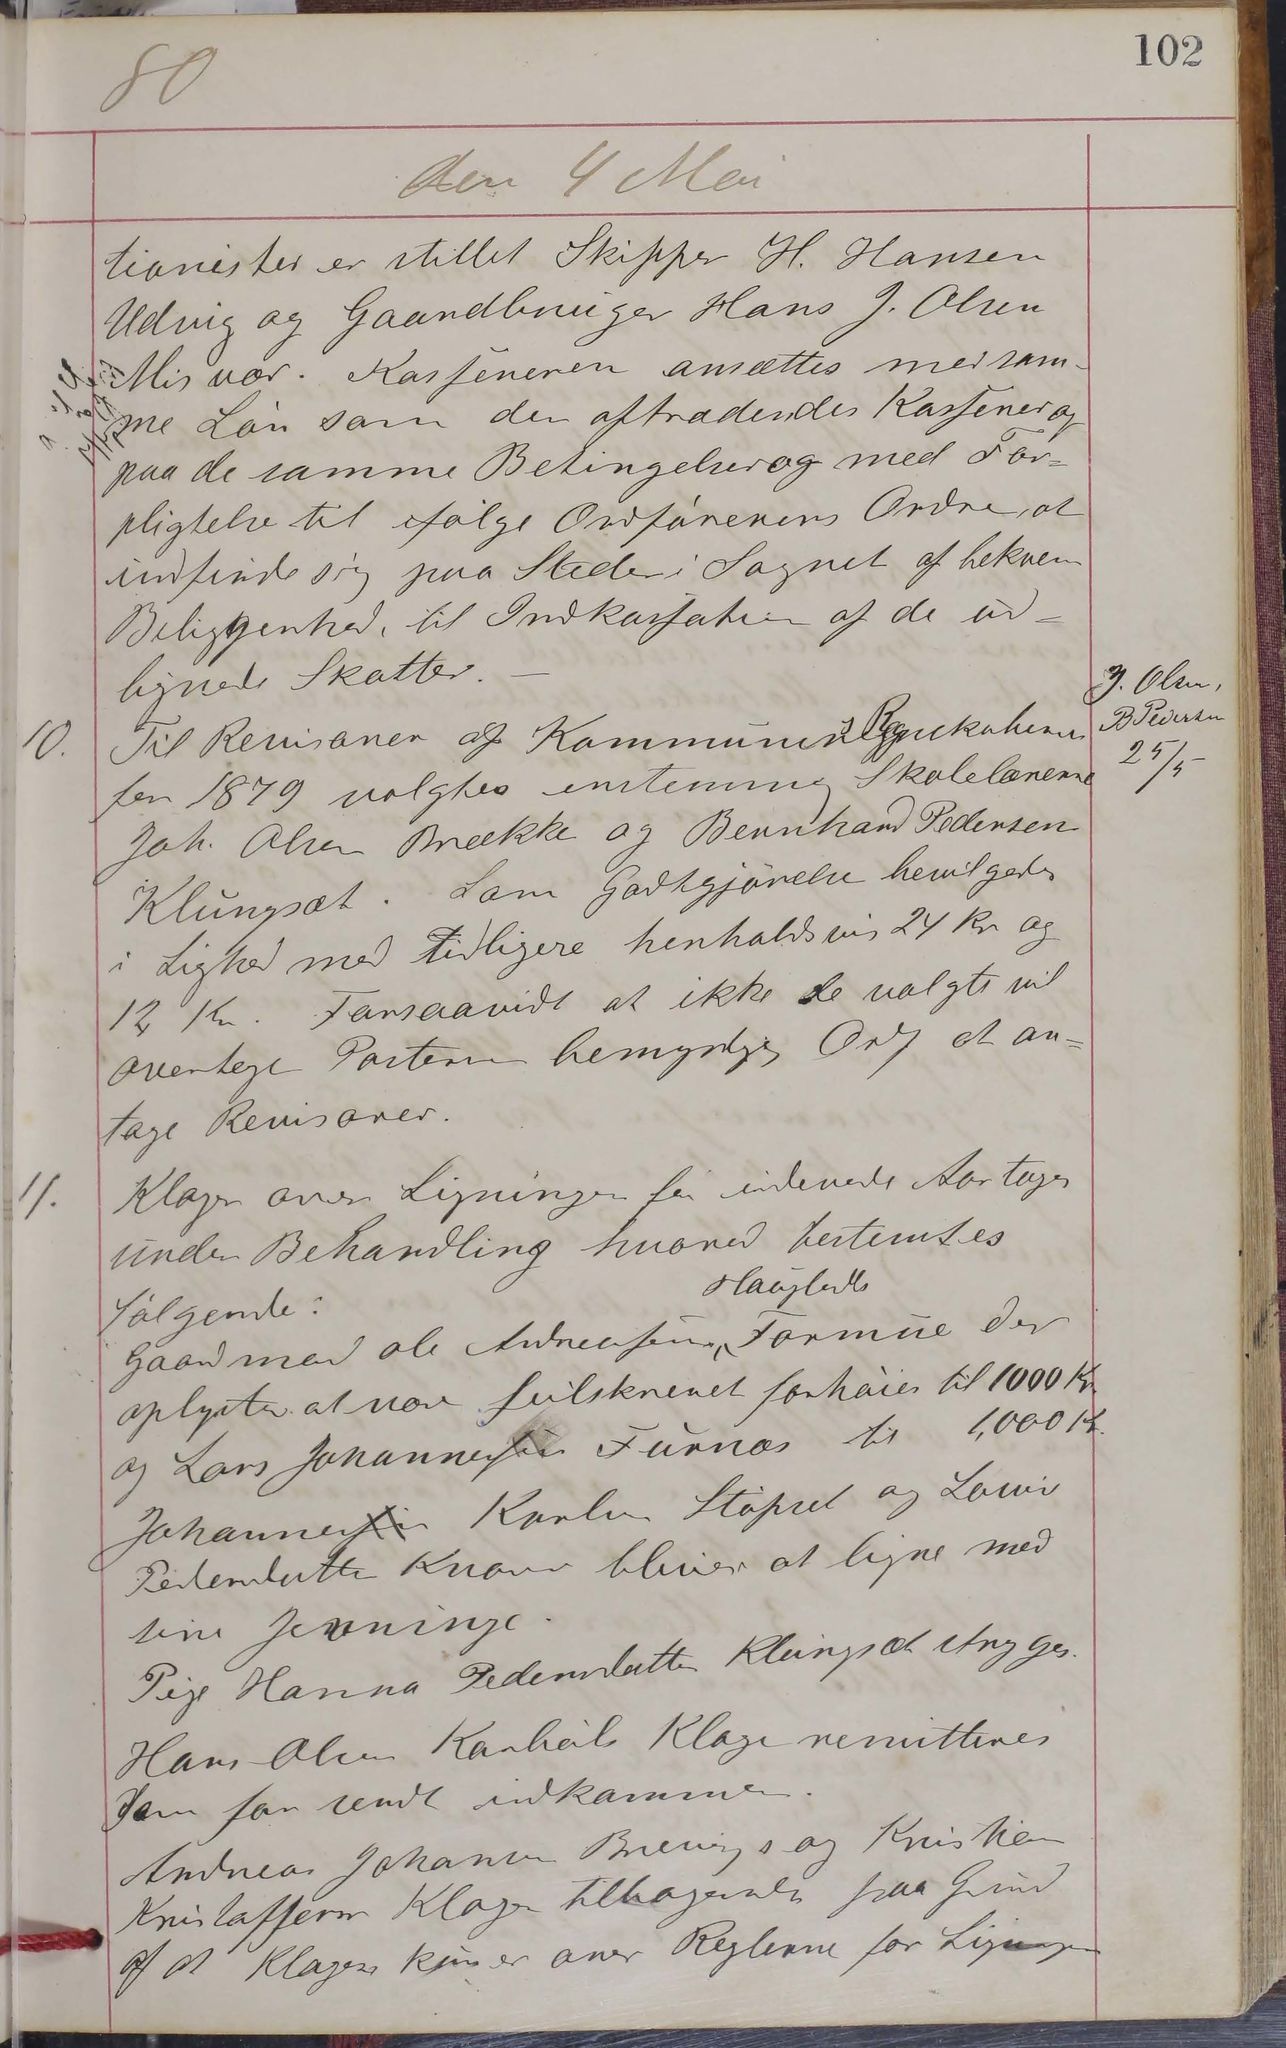 102
80
den 4 Mai
tionister er stillet Skipper H. Hansen
Udvig og Gaardbruger Hans J. Olsen
Misvær. Kassereren ansættes med sam-
me Løn som den aftrædendes Kasserer og
paa de samme Betingelser og med For=
pligtelse til ifølge Ordførerens Ordre, at
indfinde sig paa Steder i Sognet af bekvem
Beliggenhed, til Indkassation af de ud=
lignede Skatter. —
10. Til Revisorer af Kommunens Regnskaberne
for 1879 valgtes enstemmig Skolelærerne
Joh. Olsen Brække og Bernhard Pedersen
Klungsæt. Som Godtgjørelse bevilgedes
i Lighed med tidligere henholdsvis 24 Kr og
12 Kr. Forsaavidt at ikke de valgte vil
overtage Posterne bemyndiges Ordf at an=
tage Revisorer.
J. Olsen,
B Pedersen
25/5
11. Klager over Ligningen for indeværende Aar toges
under Behandling hvorved bestemtes
følgende:
Gaardmand Ole Andreassen, Haugleds Formue der
oplystes at være feilskrevet forhøies til 1000 Kr
og Lars Johannessen Furnæs til 1,000 Kr.
Johannes Karlsen Støpset og Lovise
Pedersdatter Knavr bliver at ligne med
sine
Pige Hanna Pedersdatter Klungsæt stryges.
Hans Olsen Karbøls Klage remitteres
som for sendt indkommen.
Andreas Johansen Brevigs og Kristian
Kristoffersen Klager tilbagevises paa Grund
af at Klagen kun er over Reglerne for Ligningen